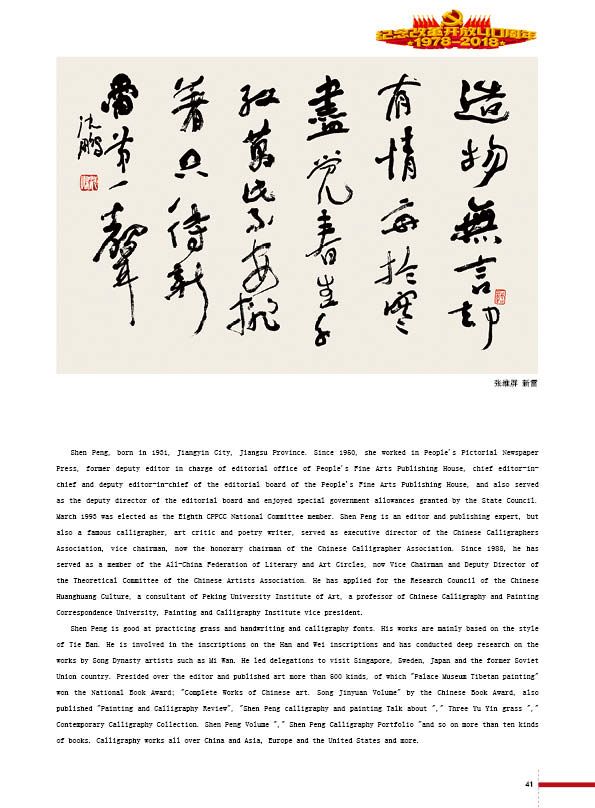 纪念改革开放40周年
1978-2018
造物無言却
有情每於寒
盡觉春生千
红萬紫安排
著只待新
雷第一聲
沈鹏
张维屏 新雷
Shen Peng, born in 1931, Jiangyin City, Jiangsu Province. Since 1950, she worked in People's Pictorial Newspaper
Press, former deputy editor in charge of editorial office of People's Fine Arts Publishing House, chief editor-in-
chief and deputy editor-in-chief of the editorial board of the People's Fine Arts Publishing House, and also served
as the deputy director of the editorial board and enjoyed special government allowances granted by the State Council.
March 1993 was elected as the Eighth CPPCC National Committee member. Shen Peng is an editor and publishing expert, but
also a famous calligrapher, art critic and poetry writer, served as executive director of the Chinese Calligraphers
Association, vice chairman, now the honorary chairman of the Chinese Calligrapher Association. Since 1988, he has
served as a member of the All-China Federation of Literary and Art Circles, now Vice Chairman and Deputy Director of
the Theoretical Committee of the Chinese Artists Association. He has applied for the Research Council of the Chinese
Huanghuang Culture, a consultant of Peking University Institute of Art, a professor of Chinese Calligraphy and Painting
Correspondence University, Painting and Calligraphy Institute vice president.
Shen Peng is good at practicing grass and handwriting and calligraphy fonts. His works are mainly based on the style
of Tie Ban. He is involved in the inscriptions on the Han and Wei inscriptions and has conducted deep research on the
works by Song Dynasty artists such as Mi Wan. He led delegations to visit Singapore, Sweden, Japan and the former Soviet
Union country. Presided over the editor and published art more than 500 kinds, of which "Palace Museum Tibetan painting"
won the National Book Award; "Complete Works of Chinese art. Song Jinyuan Volume" by the Chinese Book Award, also
published "Painting and Calligraphy Review", "Shen Peng calligraphy and painting Talk about "," Three Yu Yin grass ","
Contemporary Calligraphy Collection. Shen Peng Volume "," Shen Peng Calligraphy Portfolio "and so on more than ten kinds
of books. Calligraphy works all over China and Asia, Europe and the United States and more.
41